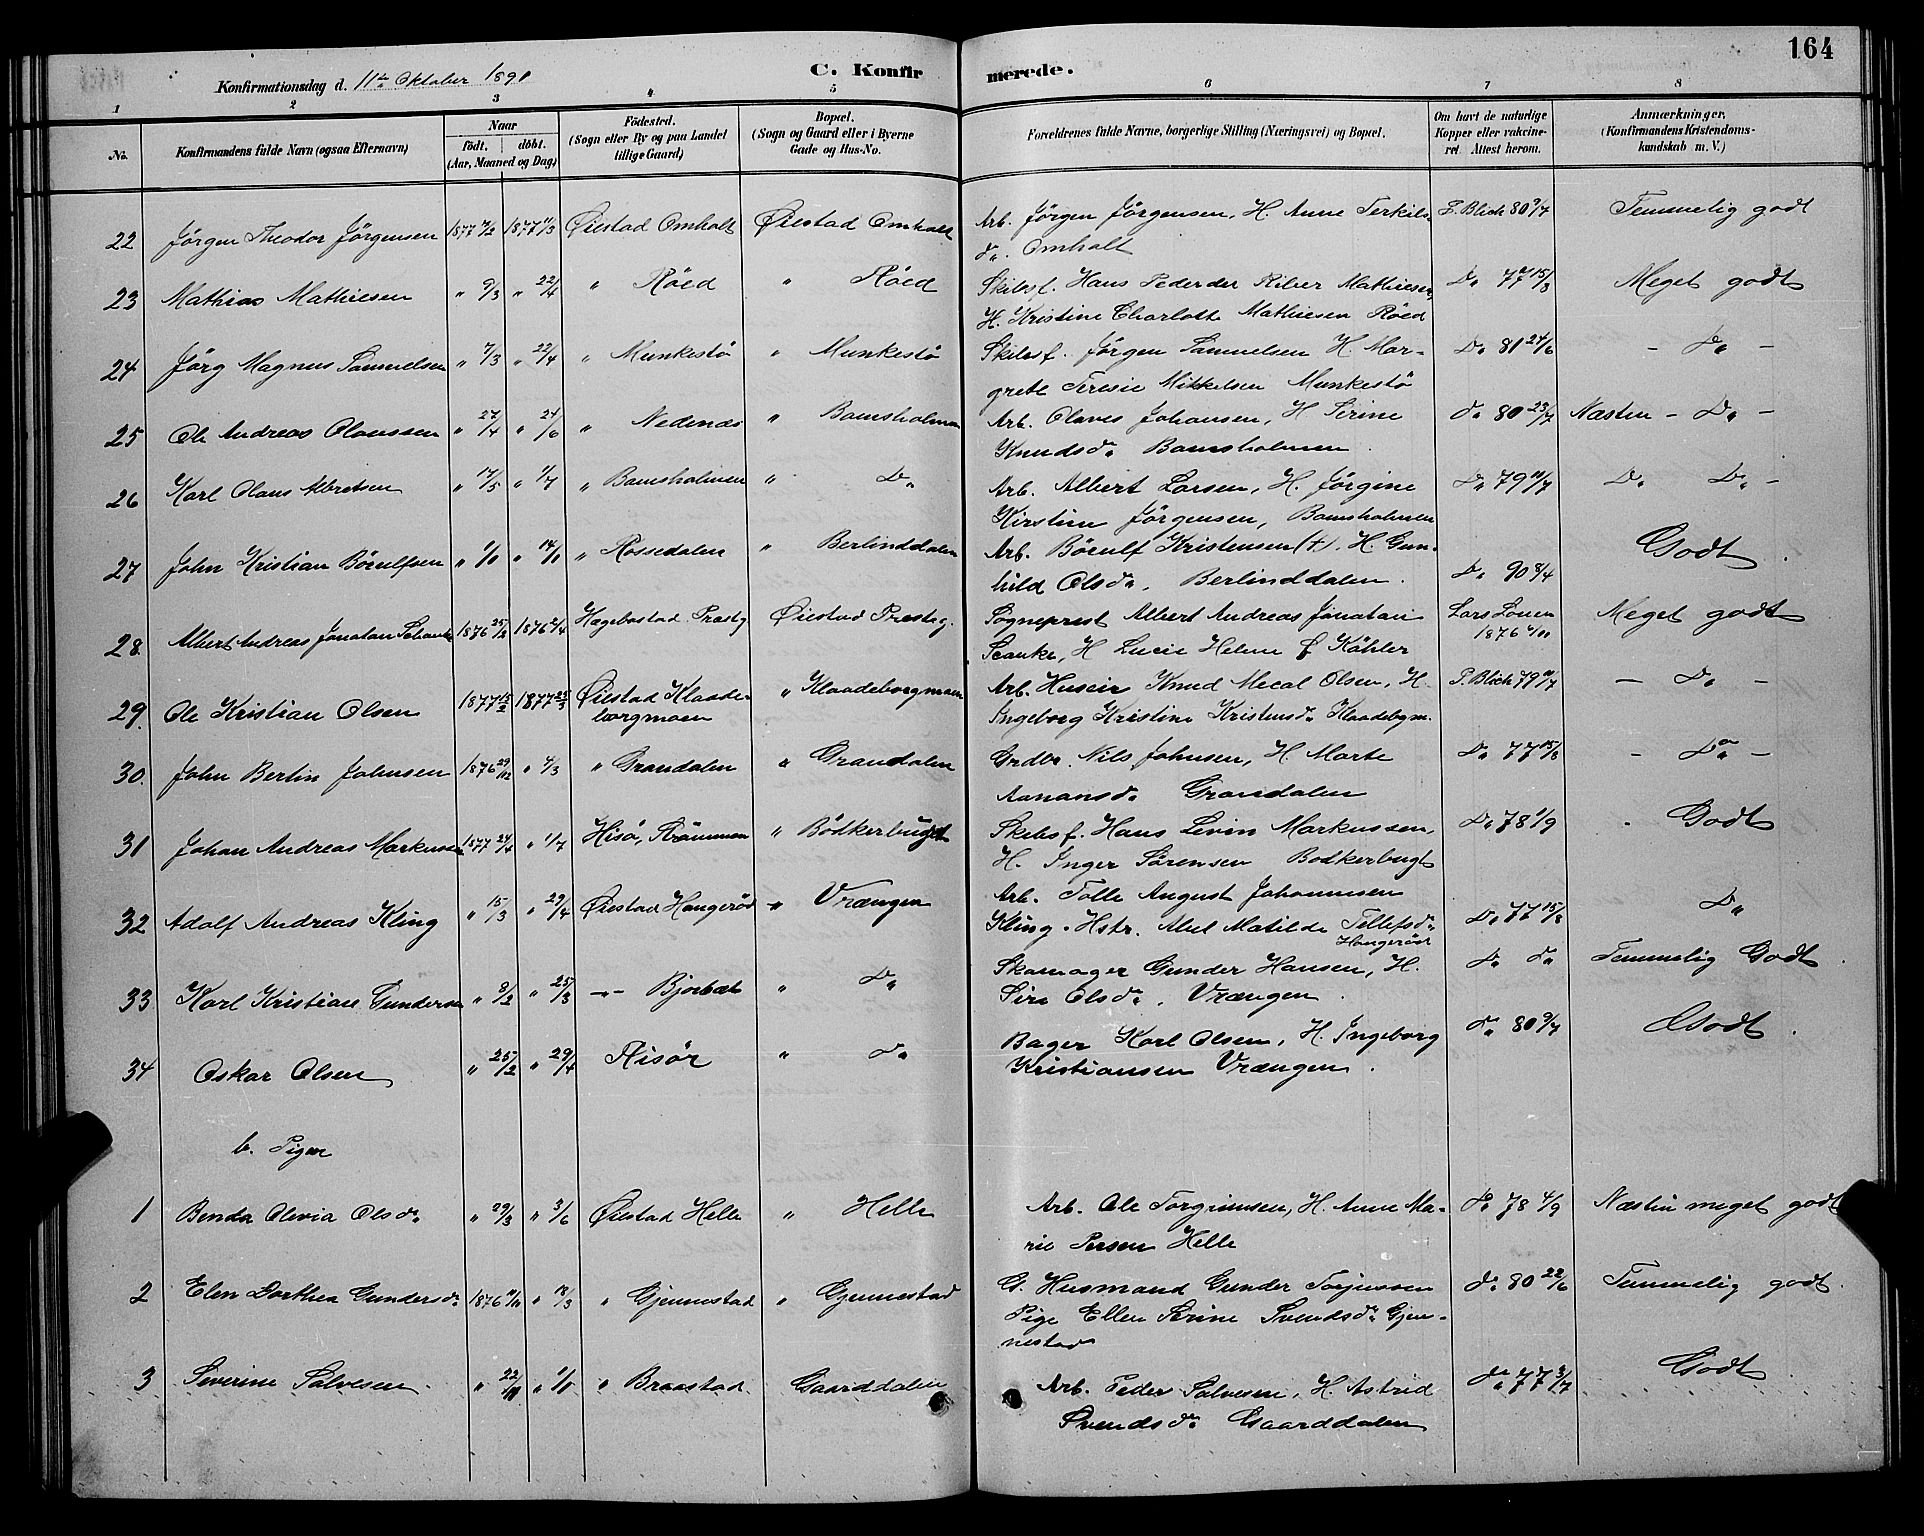 164
Konfirmationsdag d. 11te Oktober 1891
C. Konfirmerede.
1 2 3 4 5 6 7 8
No. Konfirmandens fulde Navn (ogsaa Efternavn) Naar født. døbt. (Aar, Maaned og Dag) Fødested. (Sogn eller By og paa Landet tillige Gaard) Bopæl. (Sogn og Gaard eller i Byerne Gade og Hus-No. Forældrenes fulde Navne, borgerlige Stilling (Næringsvei) og Bopæl. Om havt de naturlige Kopper eller vakcineret Attest herom. Anmærkninger, (Konfirmandens Kristendomskundskab m. V.)
22 Jörgen Theodor Jörgensen 1877 7/2 1877 11/3 Öiestad Omholt Öiestad Omholt Arb. Jörgen Jörgensen, H. Anne Terkils-
do. Omholt P. Blich 80 9/7 Temmelig godt
23 Mathias Mathiesen " 9/3 " 22/4 " Röed " Röed Skibsf. Hans Peder der Riber Mathiesen,
H. Kristine Charlotte Mathiesen Röed Do 77 15/8 Meget godt
24 Jörg Magnus Samuelsen " 7/3 " 22/4 " Munkestö " Munkestö Skibsf. Jörgen Samuelsen H. Mar-
grete Teresie Mikkelsen Munkestö Do 81 24/6 - Do -
25 Ole Andreas Olaussen " 27/4 " 24/6 " Nedenæs " Bamsholmen Arb. Olaves Johansen, H Serine
Knudsdo Bamsholmen do 80 23/7 Næsten - Do -
26 Karl Olaus Albretsen " 17/5 " 1/7 " Bamsholmen " Do Arb. Albert Larsen, H. Jörgine
Kirstine Jörgensen, Bamsholmen Do 79 11/7 Do Do -
27 John Kristian Börulfsen " 1/10 " 14/11 " Rossedalen " Berlinddalen Arb. Börulf Kristensen (+). H. Gun-
hild Olsdo, Berlinddalen. Do 90 8/4 Godt.
28. Albert Andreas Jonatan 1876 25/2 1876 2/4 Hægebostad Præstg Öiestad Præstg. Sogneprest Albert Andreas Jonatan
H Lucie Helene f Köhler Lars
1876 Meget godt
29. Ole Kristian Olsen 1877 15/2 1877 25/3 Öiestad Klaade-
borgmoen " Klaadeborgmoen Arb. Huseir Knud Mecal Olsen, H.
Ingeborg Kristine Kristensdo Klaadebgm. P. Blich 79 11/7 - Do -
30. John Bertin Johnsen 1876 29/12 " 4/3 " Grandalen " Grandalen Grdbr. Nils Johnsen, H Marte
Aanansdo Grandalen Do 77 15/8 - Do -
31 Johan Andreas Markussen 1877 24/4 " 1/7 Hisö, Strömmen " Bödkerbugt Skibsf. Hans Levin Markussen,
H. Inger Sörensen Bödkerbugt Do 78 1/9 Godt
32 Adolf Andreas Kling " 15/3 " 29/4 Öiestad Haugeröd " Vrængen Arb. Tolle August Johannesen
Kling. Hstr. Abel Matilde Tellefsdo
Haugeröd Do 77 15/8 Do
33 Karl Kristian Gundersen " 9/2 " 25/3 -"- Bjorbæk " Do Skomager Gunder Hansen, H.
Siri Olsdo. Vrængen. Do Do Temmelig Godt.
34 Oskar Olsen " 25/2 " 29/4 Risör " Do Bager Karl Olsen, H. Ingeborg
Kristiansen Vrængen. do 80 9/7 Godt.
b. Piger
1 Benda Olevia Olsdo " 29/3 " 3/6 Öiestad Helle " Helle Arb. Ole Torgrimsen, H. Anne Ma-
rie Persen Helle Do 78 4/9 Næsten meget godt
2 Elen Dorthea Gundersdo 1876 11/11 " 18/3 " Gjennestad " Gjennestad G. Husmand Gunder Torjussen
Pige Ellen Serine Svendsdo Gjen-
nestad do 80 22/6 Temmelig godt.
3 Severine Salvesen " 22/11 " 1/1 " Braastad. Gaarddalen Arb. Peder Salvesen, H. Astrid
Svendsdo Gaarddalen do 77 3/7 Godt.